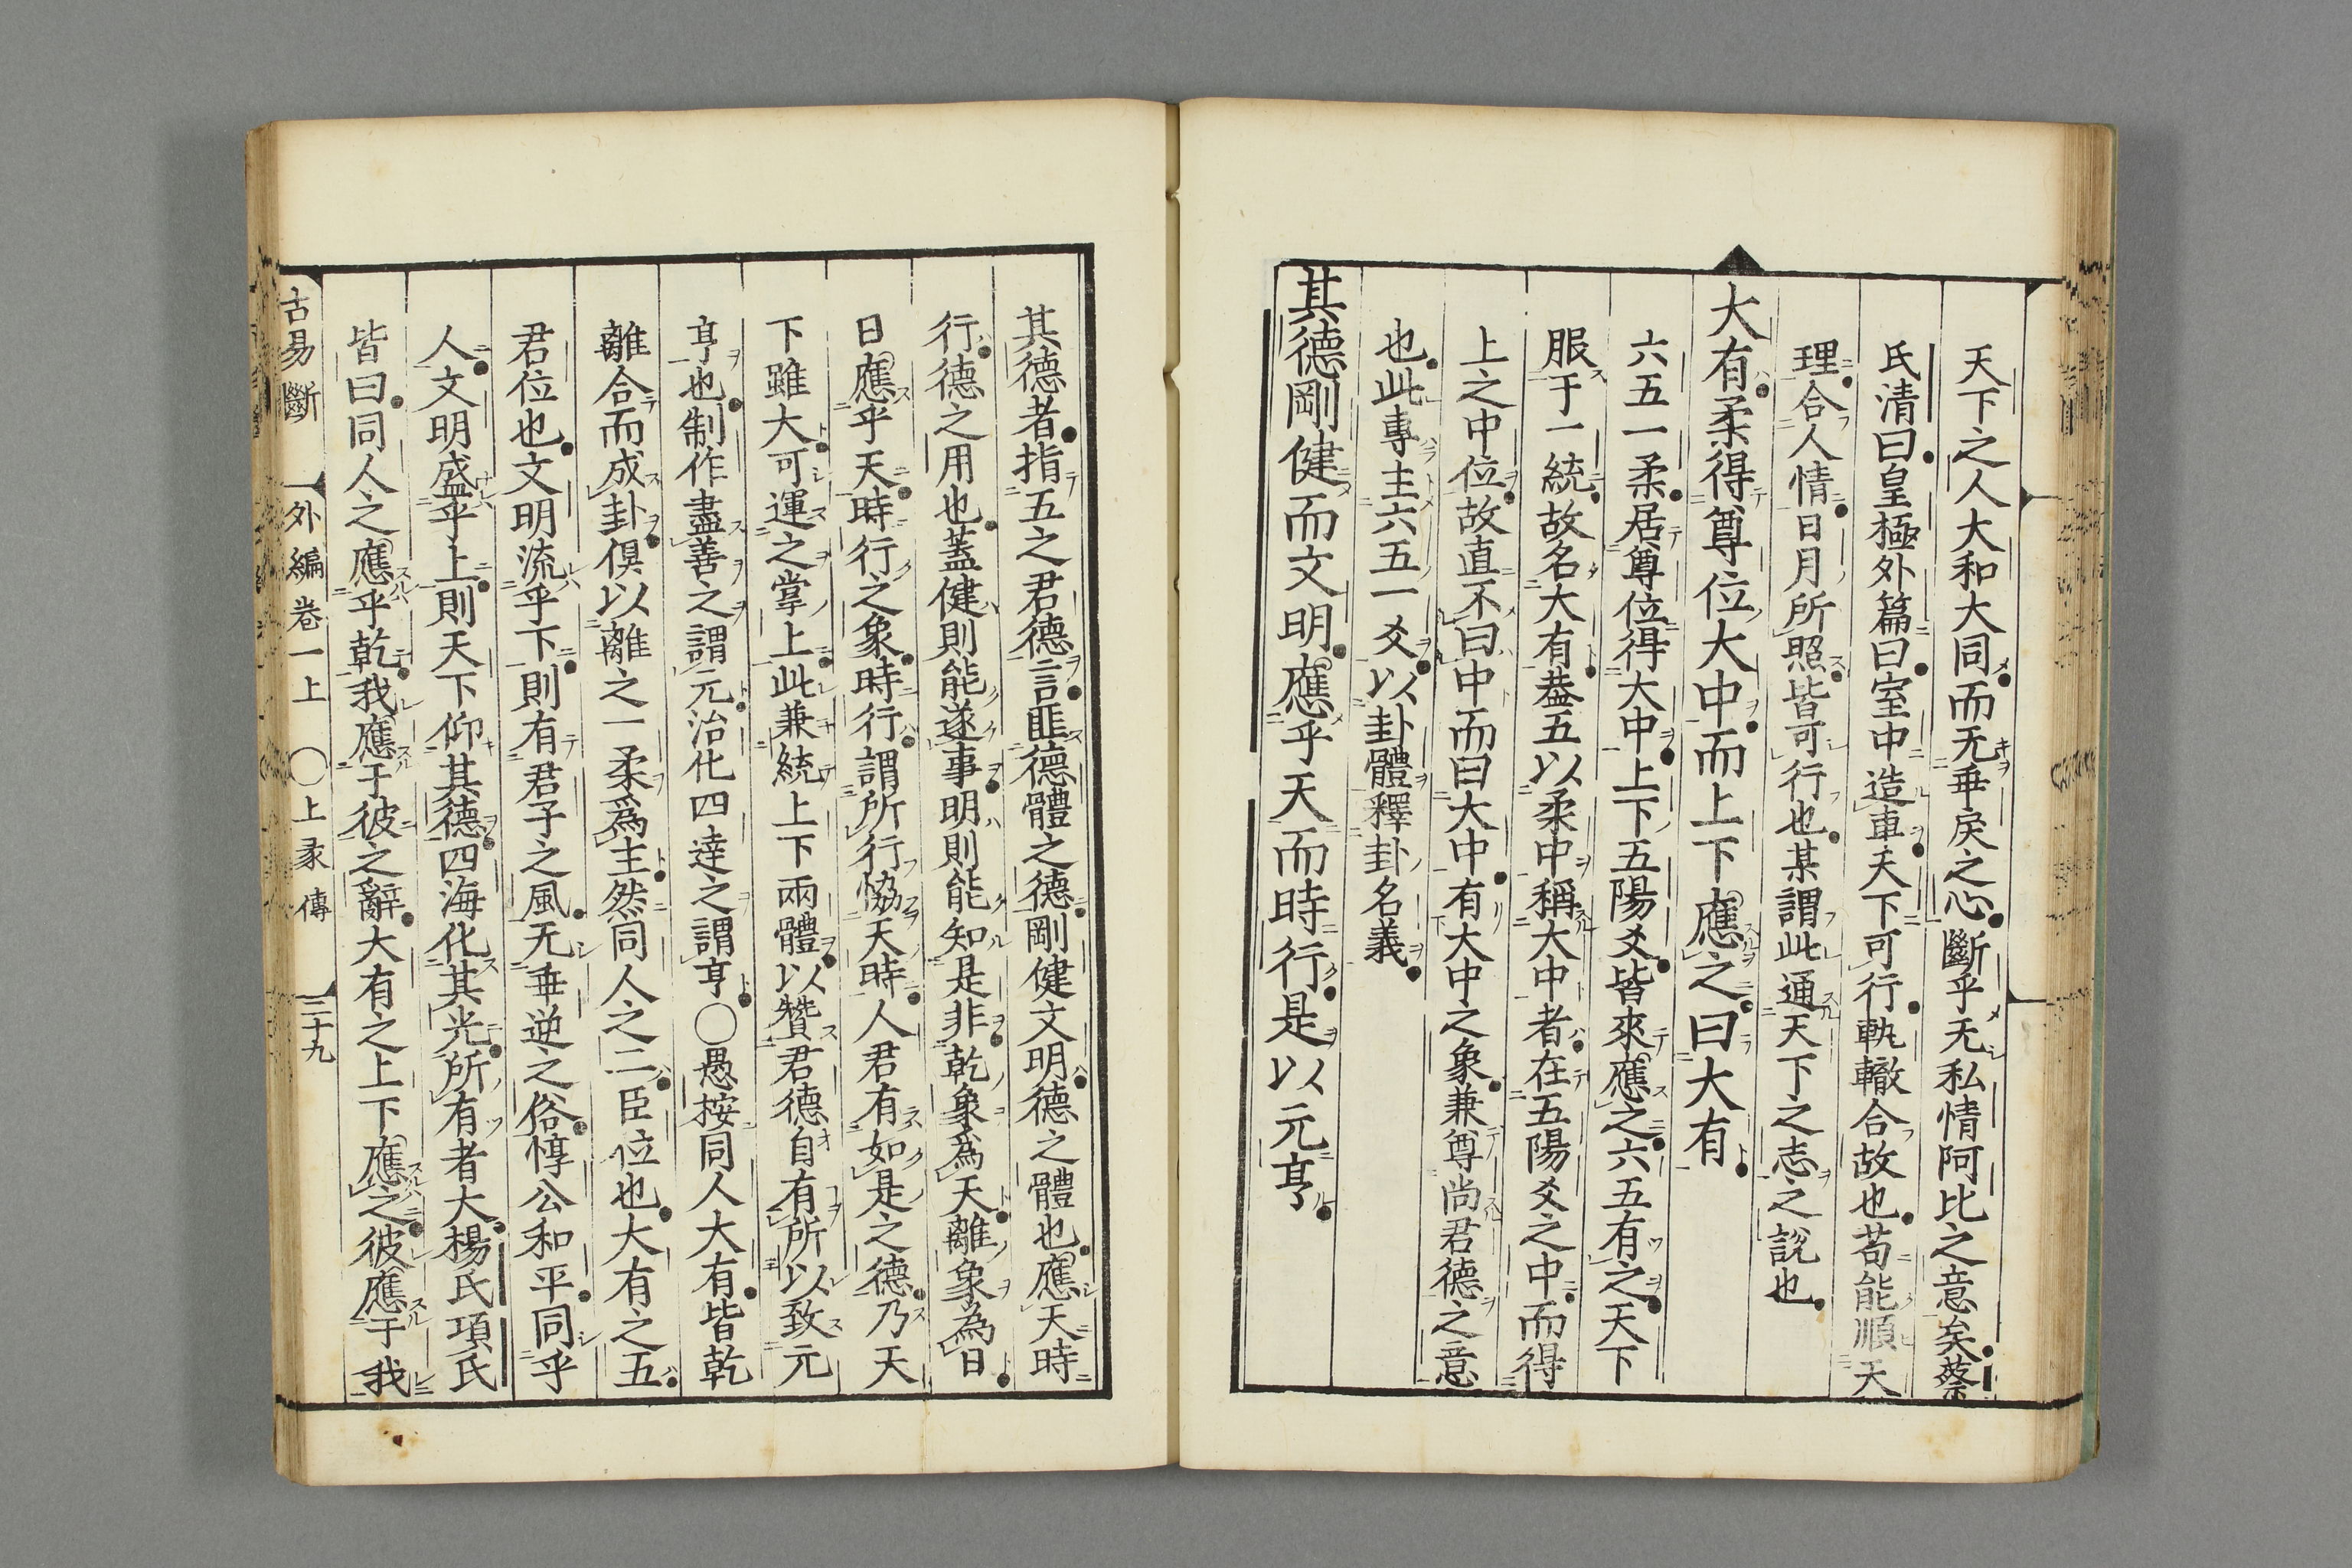 天下之人大和大同而无乖戾之心斷乎无私情阿比之意矣蔡
氏清曰皇極外篇曰室中造車天下可行軌轍合故也苟能順天
理合人情日月所照皆可行也某謂此通天下之志之說也
大有柔得尊位大中而上下應之曰大有
六五一柔居尊位得大中上下五陽爻皆來應之六五有之天下
服于一統故名大有葢五以柔中稱大中者在五陽爻之中而得
上之中位故直不曰中而曰大中有大中之象兼尊尚君德之意
也此專主六五一爻以卦體釋卦名義
其德剛健而文明應乎天而時行是以元亨
其德者指五之君德言匪德體之德剛健文明德之體也應天時
行德之用也蓋健則能遂事明則能知是非乾象爲天離象為日
日應乎天時行之象時行謂所行恊天時人君有如是之德乃天
下雖大可運之掌上此兼統上下兩體以贊君德自有所以致元
亨也制作盡善之謂元治化四達之謂亨〇愚按同人大有皆乾
離合而成卦俱以離之一柔爲主然同人之二臣位也大有之五
君位也文明流乎下則有君子之風无乖逆之俗惇公和平同乎
人文明盛乎上則天下仰其德四海化其光所有者大楊氏項氏
皆曰同人之應乎乾我應于彼之辭大有之上下應之彼應于我
古易斷 外編卷一上 〇上彖傳 三十九